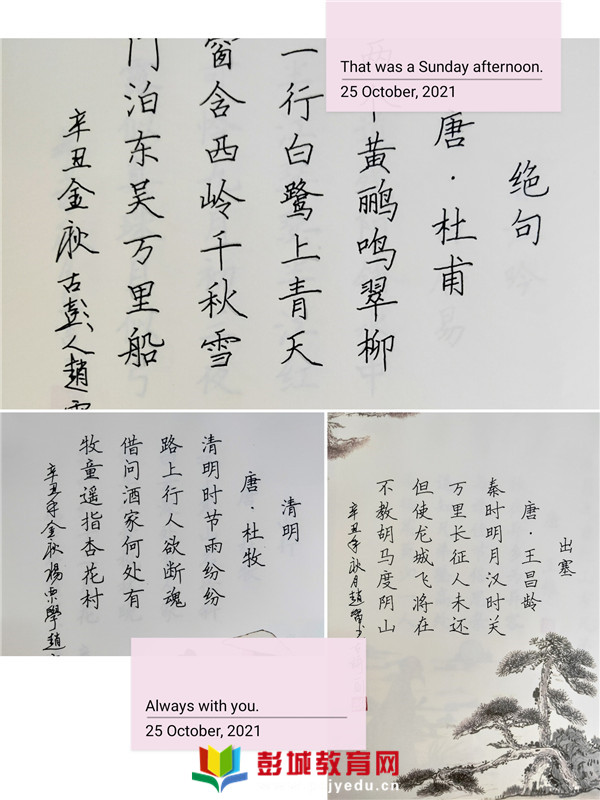 That was a Sunday afternoon.
25 October, 2021
绝句
唐·杜甫
黄鹂鸣翠柳
一行白鹭上青天
窗含西岭千秋雪
门泊东吴万里船
辛丑金秋古彭人趙
清明
唐·杜牧
清明时节雨纷纷
路上行人欲断魂
借问酒家何处有
牧童遥指杏花村
辛丑年金秋楊
出塞
唐·王昌龄
秦时明月汉时关
万里长征人未还
但使龙城飞将在
不教胡马度阴山
辛丑年秋月趙
Always with you.
25 October, 2021
彭城教育网
jyedu.cn